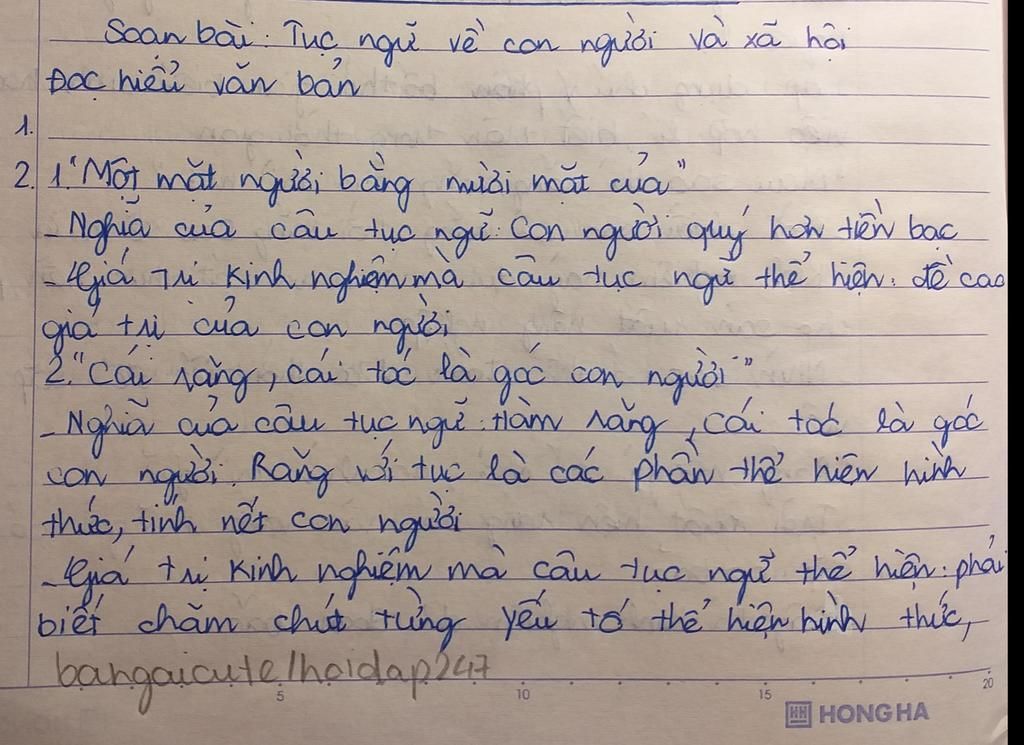 Soạn bài: Tục ngữ về con người và xã hội
Đọc hiểu văn bản
1.
2. 1."Một mặt người bằng mười mặt của"
- Nghĩa của câu tục ngữ: Con người quý hơn tiền bạc
- Giá trị kinh nghiệm mà câu tục ngữ thể hiện: đề cao
giá trị của con người
2."Cái răng, cái tóc là góc con người"
- Nghĩa của câu tục ngữ: Hàm răng, cái tóc là góc
con người. Răng với tục là các phần thể hiện hình
thức, tính nết con người
- Giá trị kinh nghiệm mà câu tục ngữ thể hiện: phải
biết chăm chút từng yếu tố thể hiện hình thức,
bangaicute/hoidap247
5 10 15 20
HH HONG HA